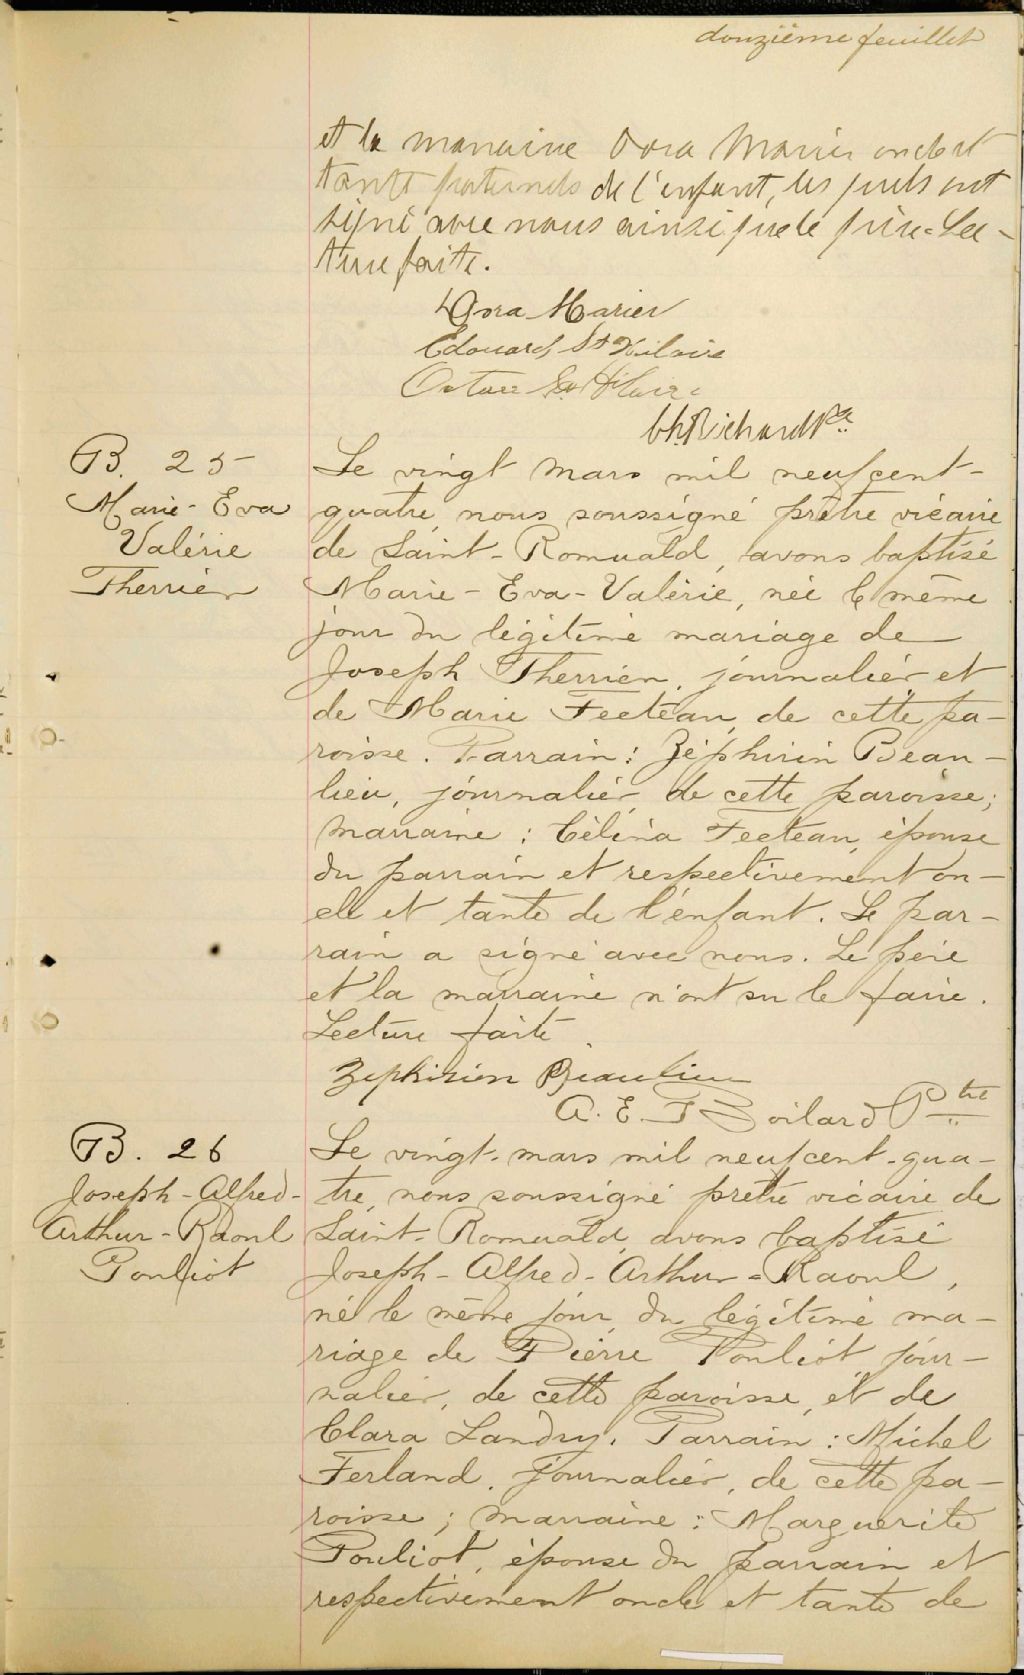 douzième feuillet
et la marraine Dora Marier oncle et
tante paternels de l'enfant, lesquels ont
signé avec nous ainsi que le père. Lec-
ture faite.
Dora Marier
Edouard St Hilaire
Octave St Hilaire
Ch. Richard Ptre
B. 25
Marie-Eva
Valérie
Therrien
Le vingt mars mil neuf cent-
quatre, nous soussigné prêtre vicaire
de Saint-Romuald, avons baptisé
Marie-Eva-Valérie, née le même
jour du légitime mariage de
Joseph Therrien, journalier et
de Marie Fecteau, de cette pa-
roisse. Parrain: Zéphirin Beau-
lieu, journalier, de cette paroisse;
marraine: Célina Fecteau, épouse
du parrain et respectivement on-
cle et tante de l'enfant. Le par-
rain a signé avec nous. Le père
et la marraine n'ont su le faire.
Lecture faite.
Zephirien Beaulieu
A. E. T Boilard Ptre
B. 26
Joseph-Alfred-
Arthur-Raoul
Pouliot
Le vingt-mars mil neuf cent-qua-
tre, nous soussigné prêtre vicaire de
Saint-Romuald, avons baptisé
Joseph-Alfred-Arthur-Raoul,
né le même jour, du légitime ma-
riage de Pierre Pouliot, jour-
nalier, de cette paroisse, et de
Clara Landry. Parrain: Michel
Ferland, journalier, de cette pa-
roisse; marraine: Marguerite
Pouliot, épouse du parrain et
respectivement oncle et tante de